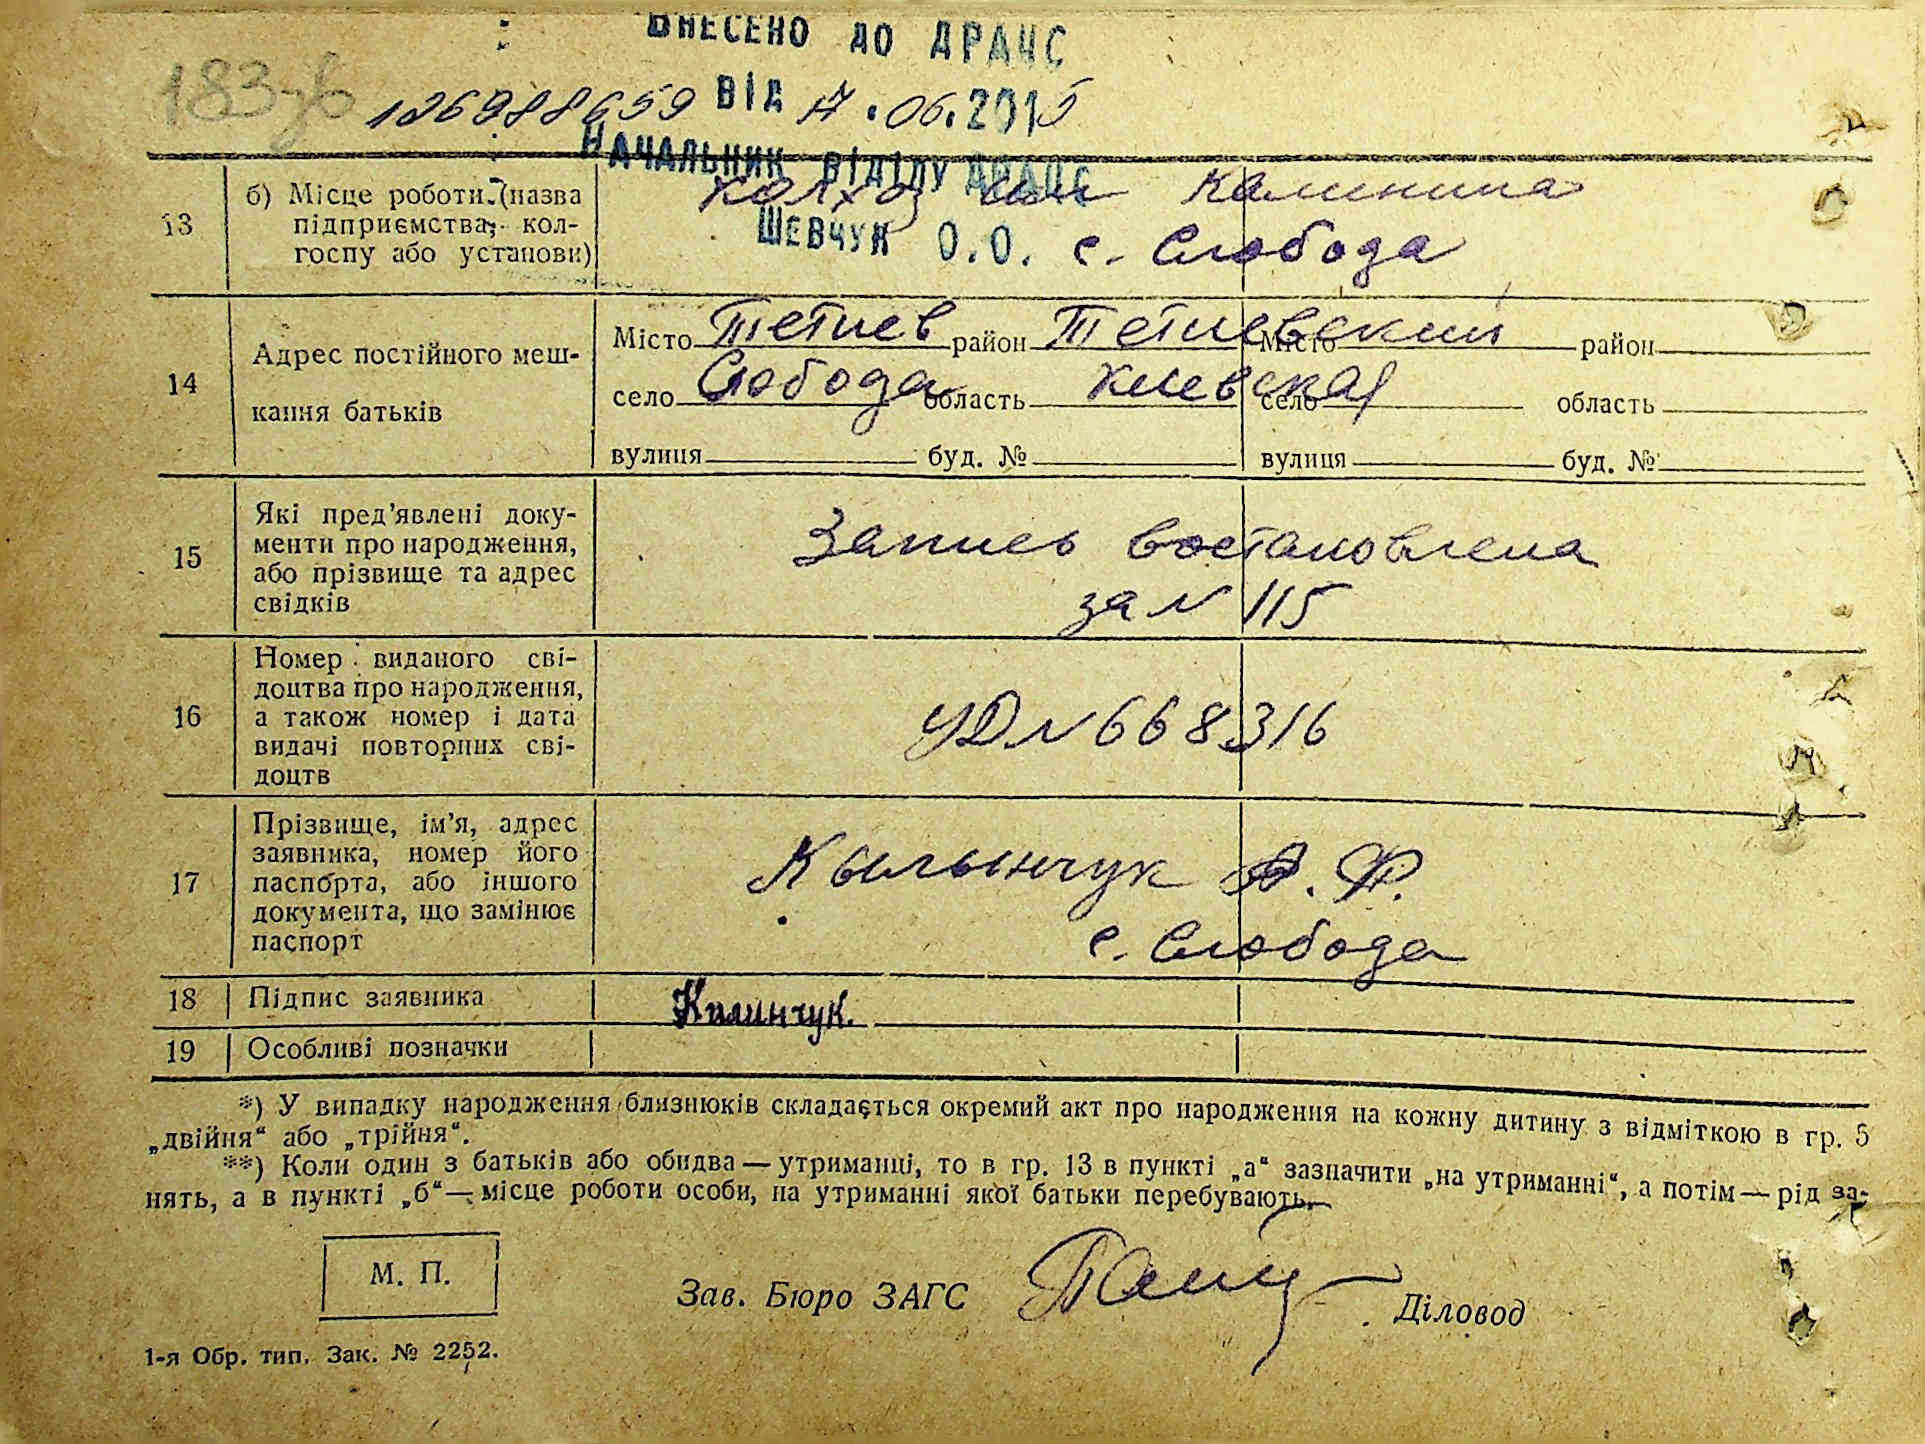 ВНЕСЕНО ДО ДРАЦС
183 зв
126988659 ВІД 17.06.2015
НАЧАЛЬНИК ВІДІЛУ ДРАЦС
ШЕВЧУК О.О.
13 б) Місце роботи (назва
підприємства, кол-
госпу або установи)
колхоз им Калинина
с. Слобода
14 Адрес постійного меш-
кання батьків
Місто Тетиев район Тетиевский Місто район
село Слобода область Киевская село область
вулиця буд. № вулиця буд. №
15 Які пред'явлені доку-
менти про народження,
або прізвище та адрес
свідків
Запись востановлена
за N 115
16 Номер виданого сві-
доцтва про народження,
а також номер і дата
видачі повторних сві-
доцтв
УД N 668316
17 Прізвище, ім'я, адрес
заявника, номер його
паспорта, або іншого
документа, що замінює
паспорт
Кылынчук Ф.
с. Слобода
18 Підпис заявника Килинчук.
19 Особливі позначки
*) У випадку народження близнюків складається окремий акт про народження на кожну дитину з відміткою в гр. 5
„двійня“ або „трійня“.
**) Коли один з батьків або обидва — утриманці, то в гр. 13 в пункті „а“ зазначити „на утриманні“, а потім — рід за-
нять, а в пункті „б“ — місце роботи особи, на утриманні якої батьки перебувають.
М. П.
Зав. Бюро ЗАГС Діловод
1-я Обр. тип. Зак. № 2252.